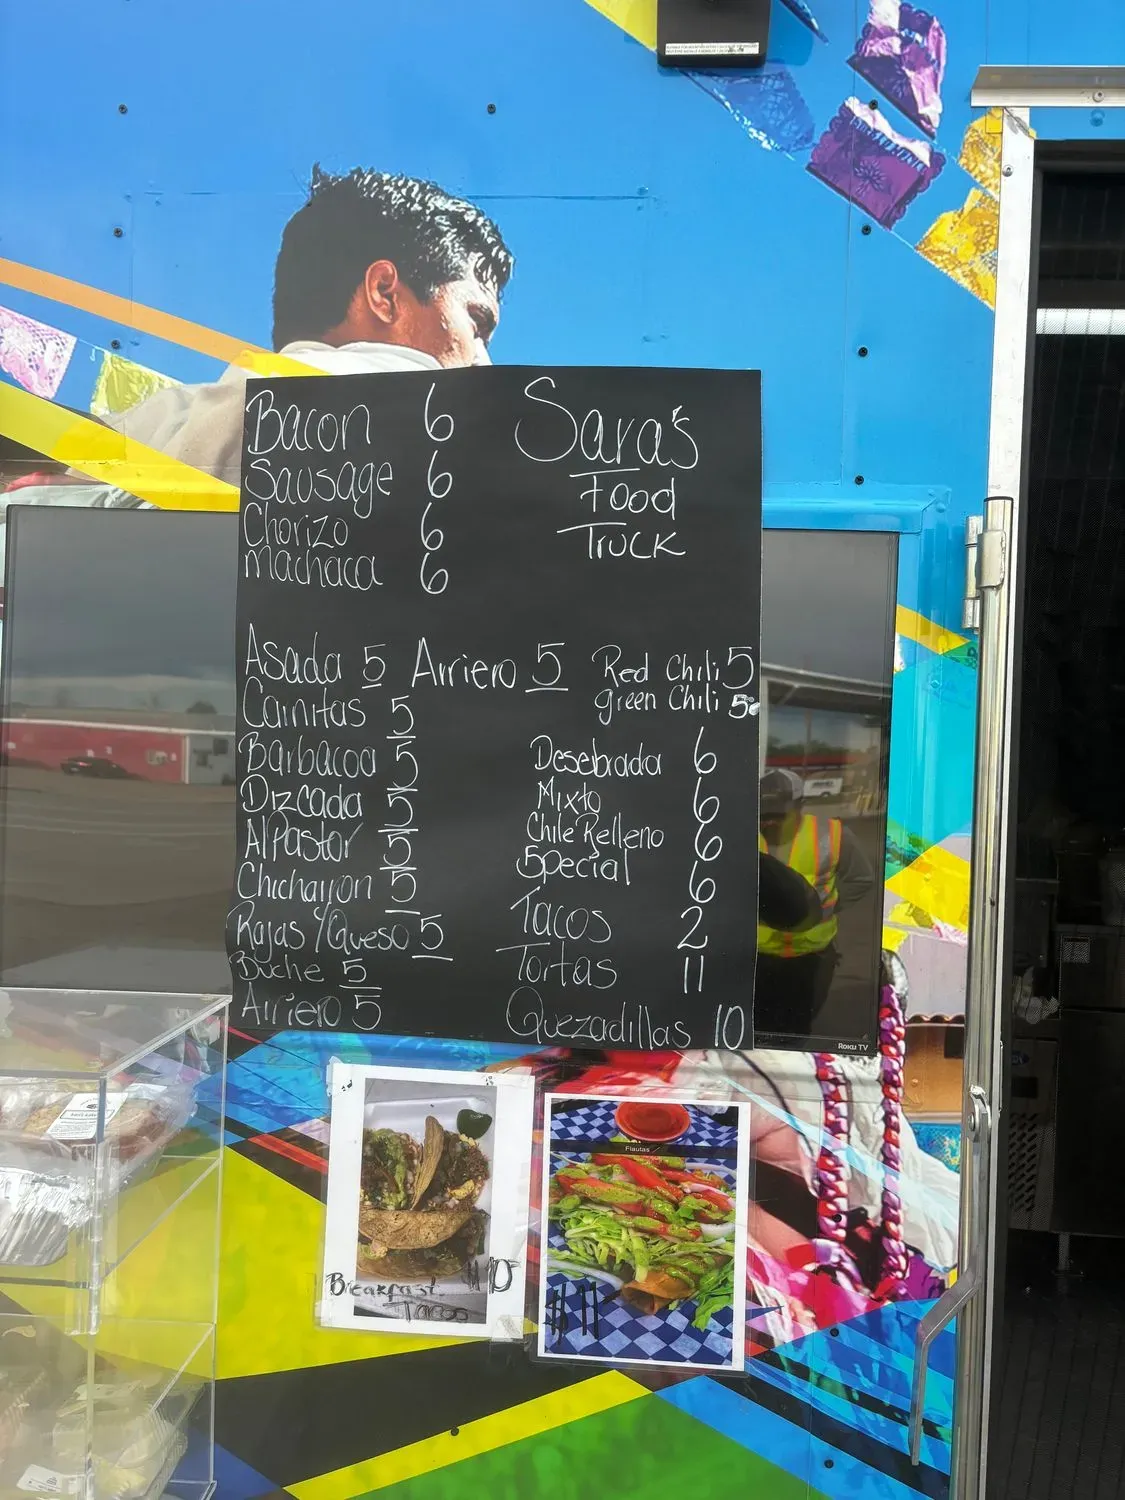 Bacon 6
Sausage 6
Chorizo 6
Machaca 6
Sara's
Food
Truck
Asada 5
Carnitas 5
Barbacoa 5
Dizcada 5
Al Pastor 5
Chicharron 5
Rajas / Queso 5
Buche 5
Arriero 5
Arriero 5
Red Chili 5
green Chili 5
Desebrada 6
Mixto 6
Chile Relleno 6
Special 6
Tacos 2
Tortas 11
Quezadillas 10
Roku TV
Breakfast $10
Tacos
Flautas
$11